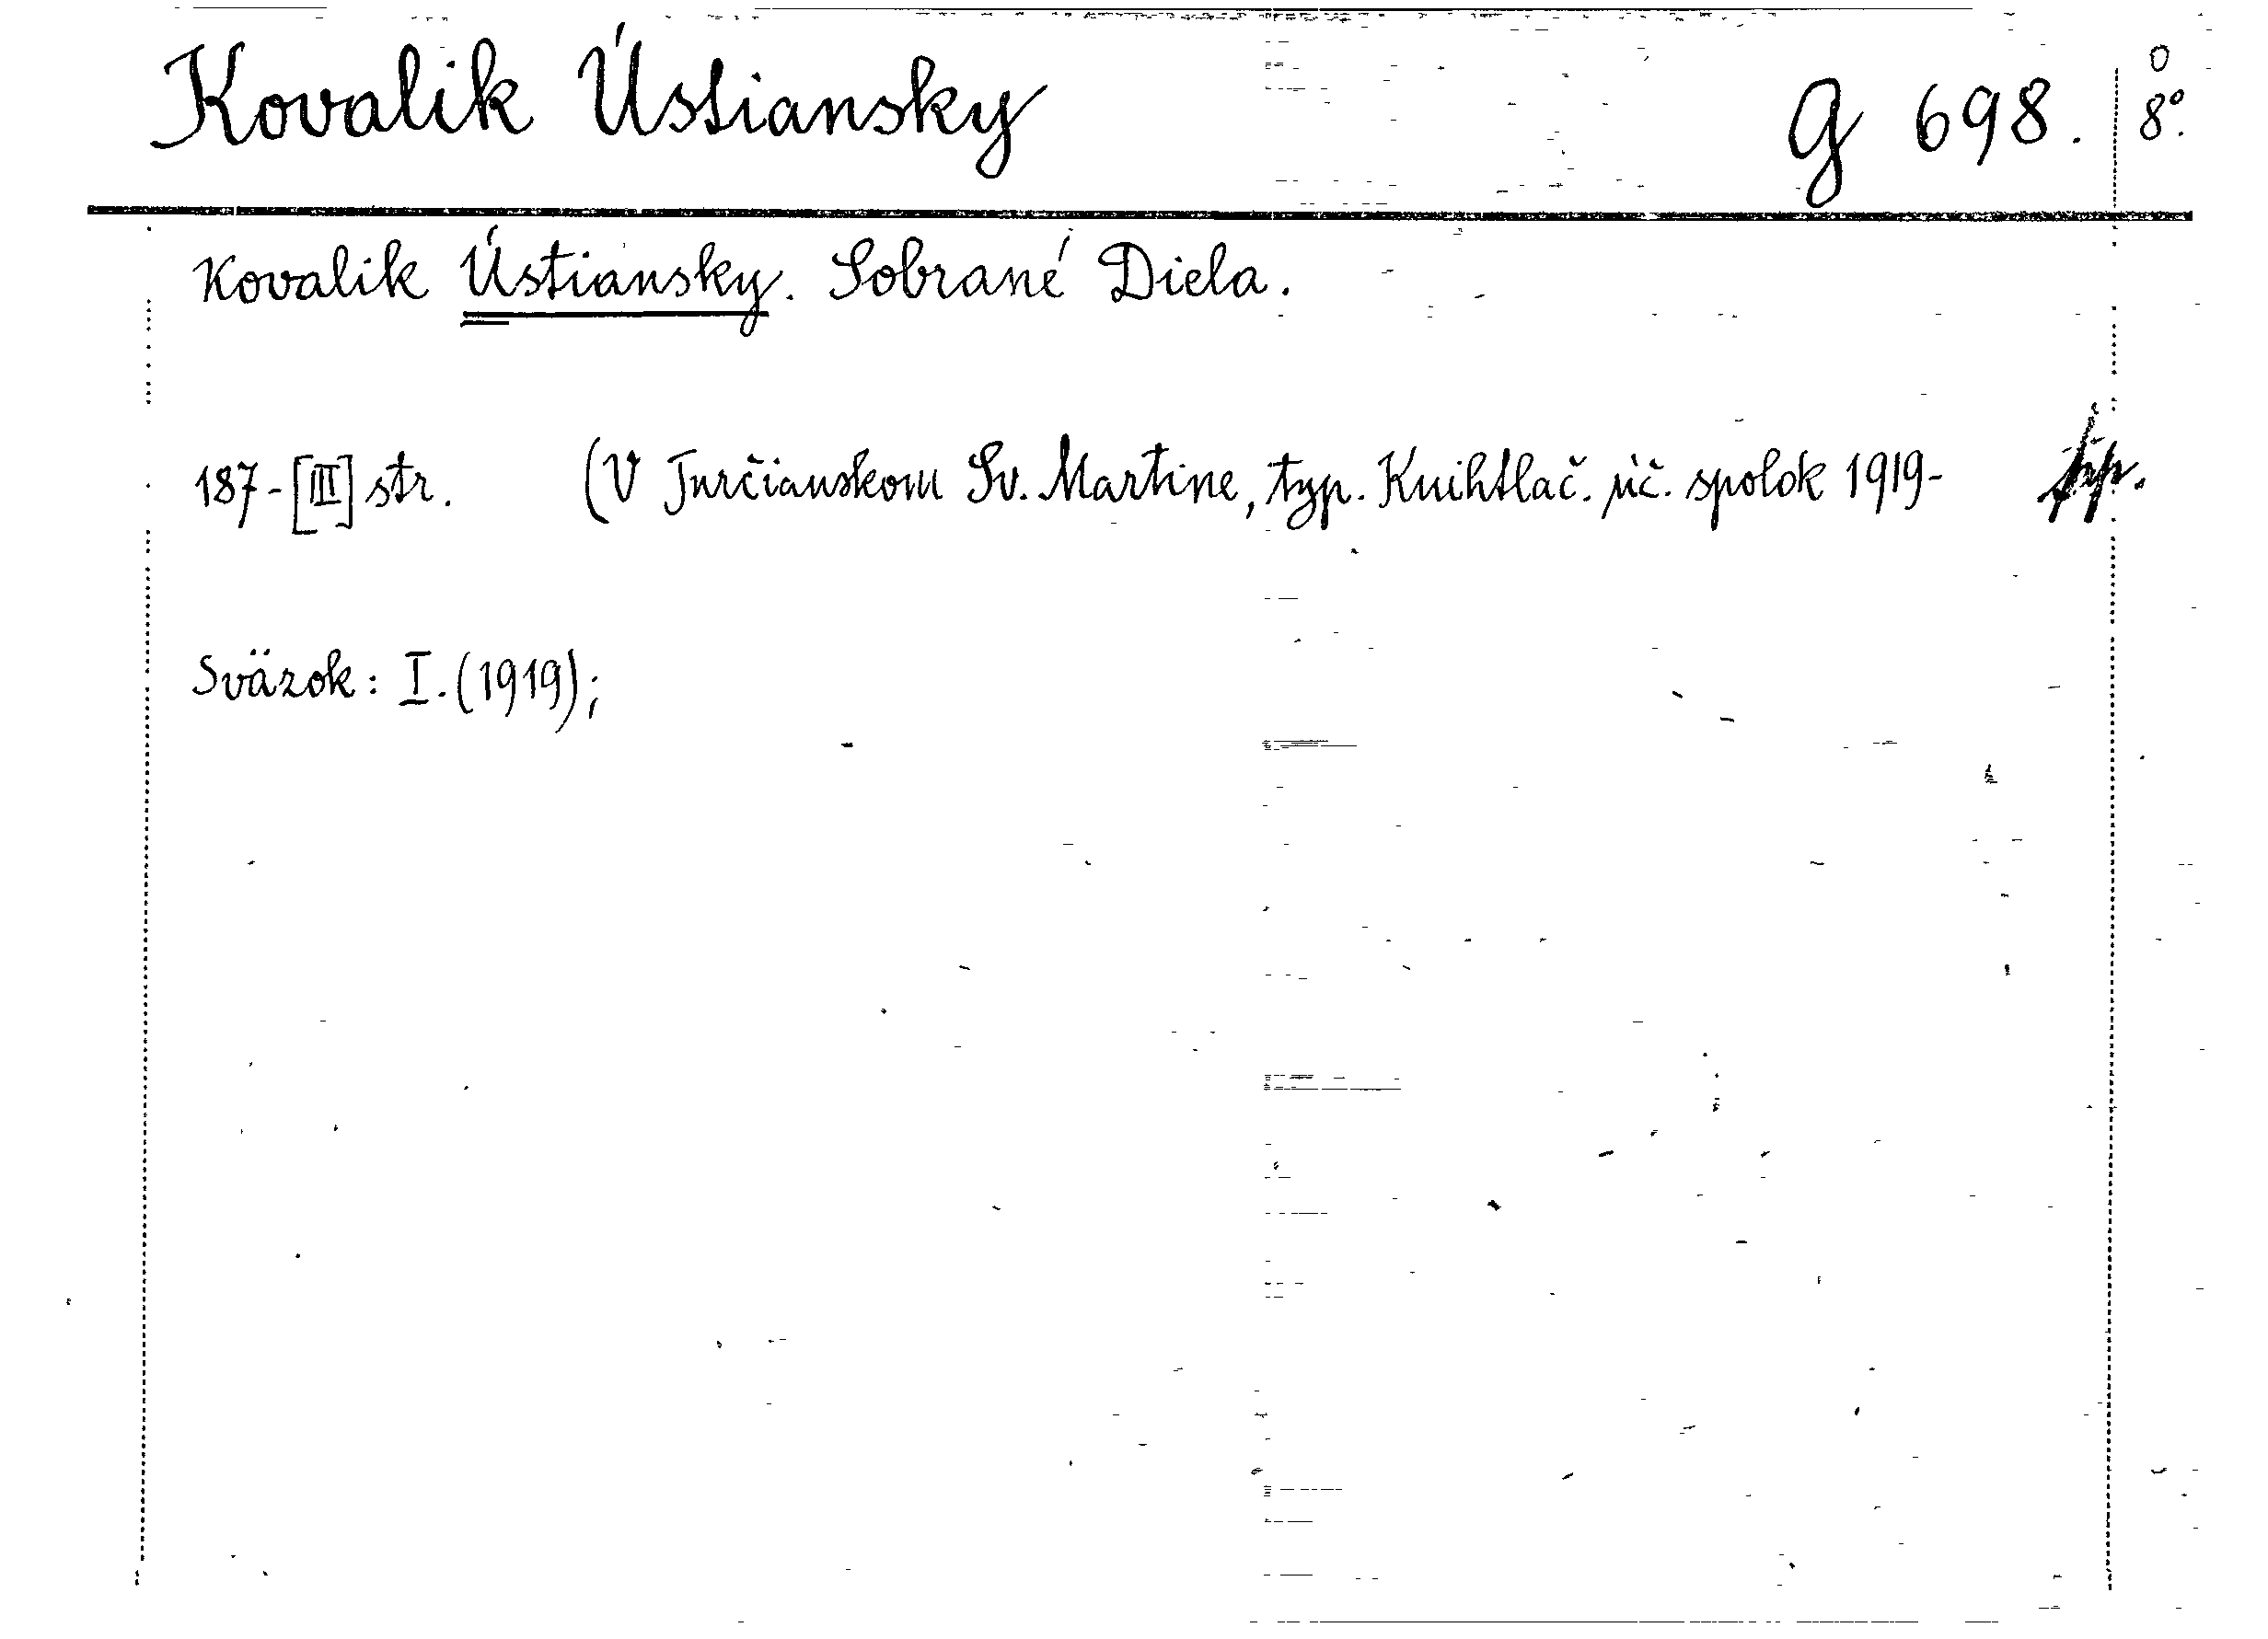 Kovalik Ústiansky g 698. 0
8°.
Kovalik Ústiansky. Sobrané Diela.
187-[III] str. (V Turčianskom Sv. Martine, typ. Kníhtlač. úč. spolok 1919-
Sväzok: I. (1919);